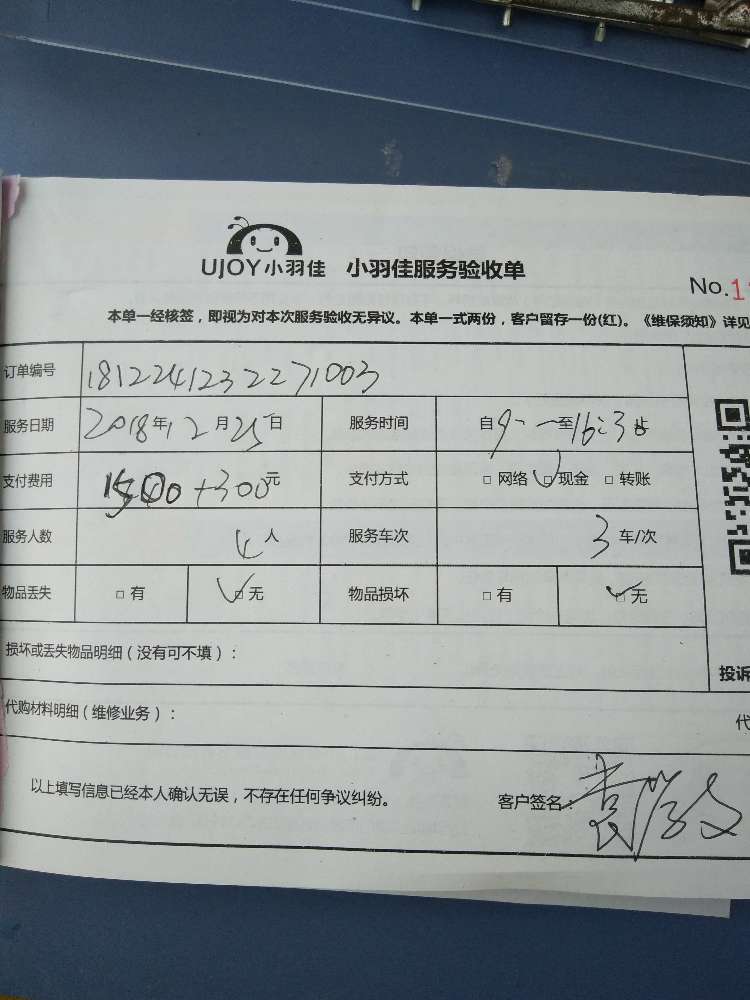 UJOY小羽佳 小羽佳服务验收单
No.1
本单一经核签，即视为对本次服务验收无异议。本单一式两份，客户留存一份(红)。《维保须知》详见
订单编号 1812241232271003
服务日期 2018年12月25日 服务时间 自9 至16:3
支付费用 +300元 支付方式 □网络 ☑现金 □转账
服务人数 4人 服务车次 3车/次
物品丢失 □有 ☑无 物品损坏 □有 ☑无
损坏或丢失物品明细（没有可不填）：
投诉
代购材料明细（维修业务）：
代
以上填写信息已经本人确认无误，不存在任何争议纠纷。 客户签名：